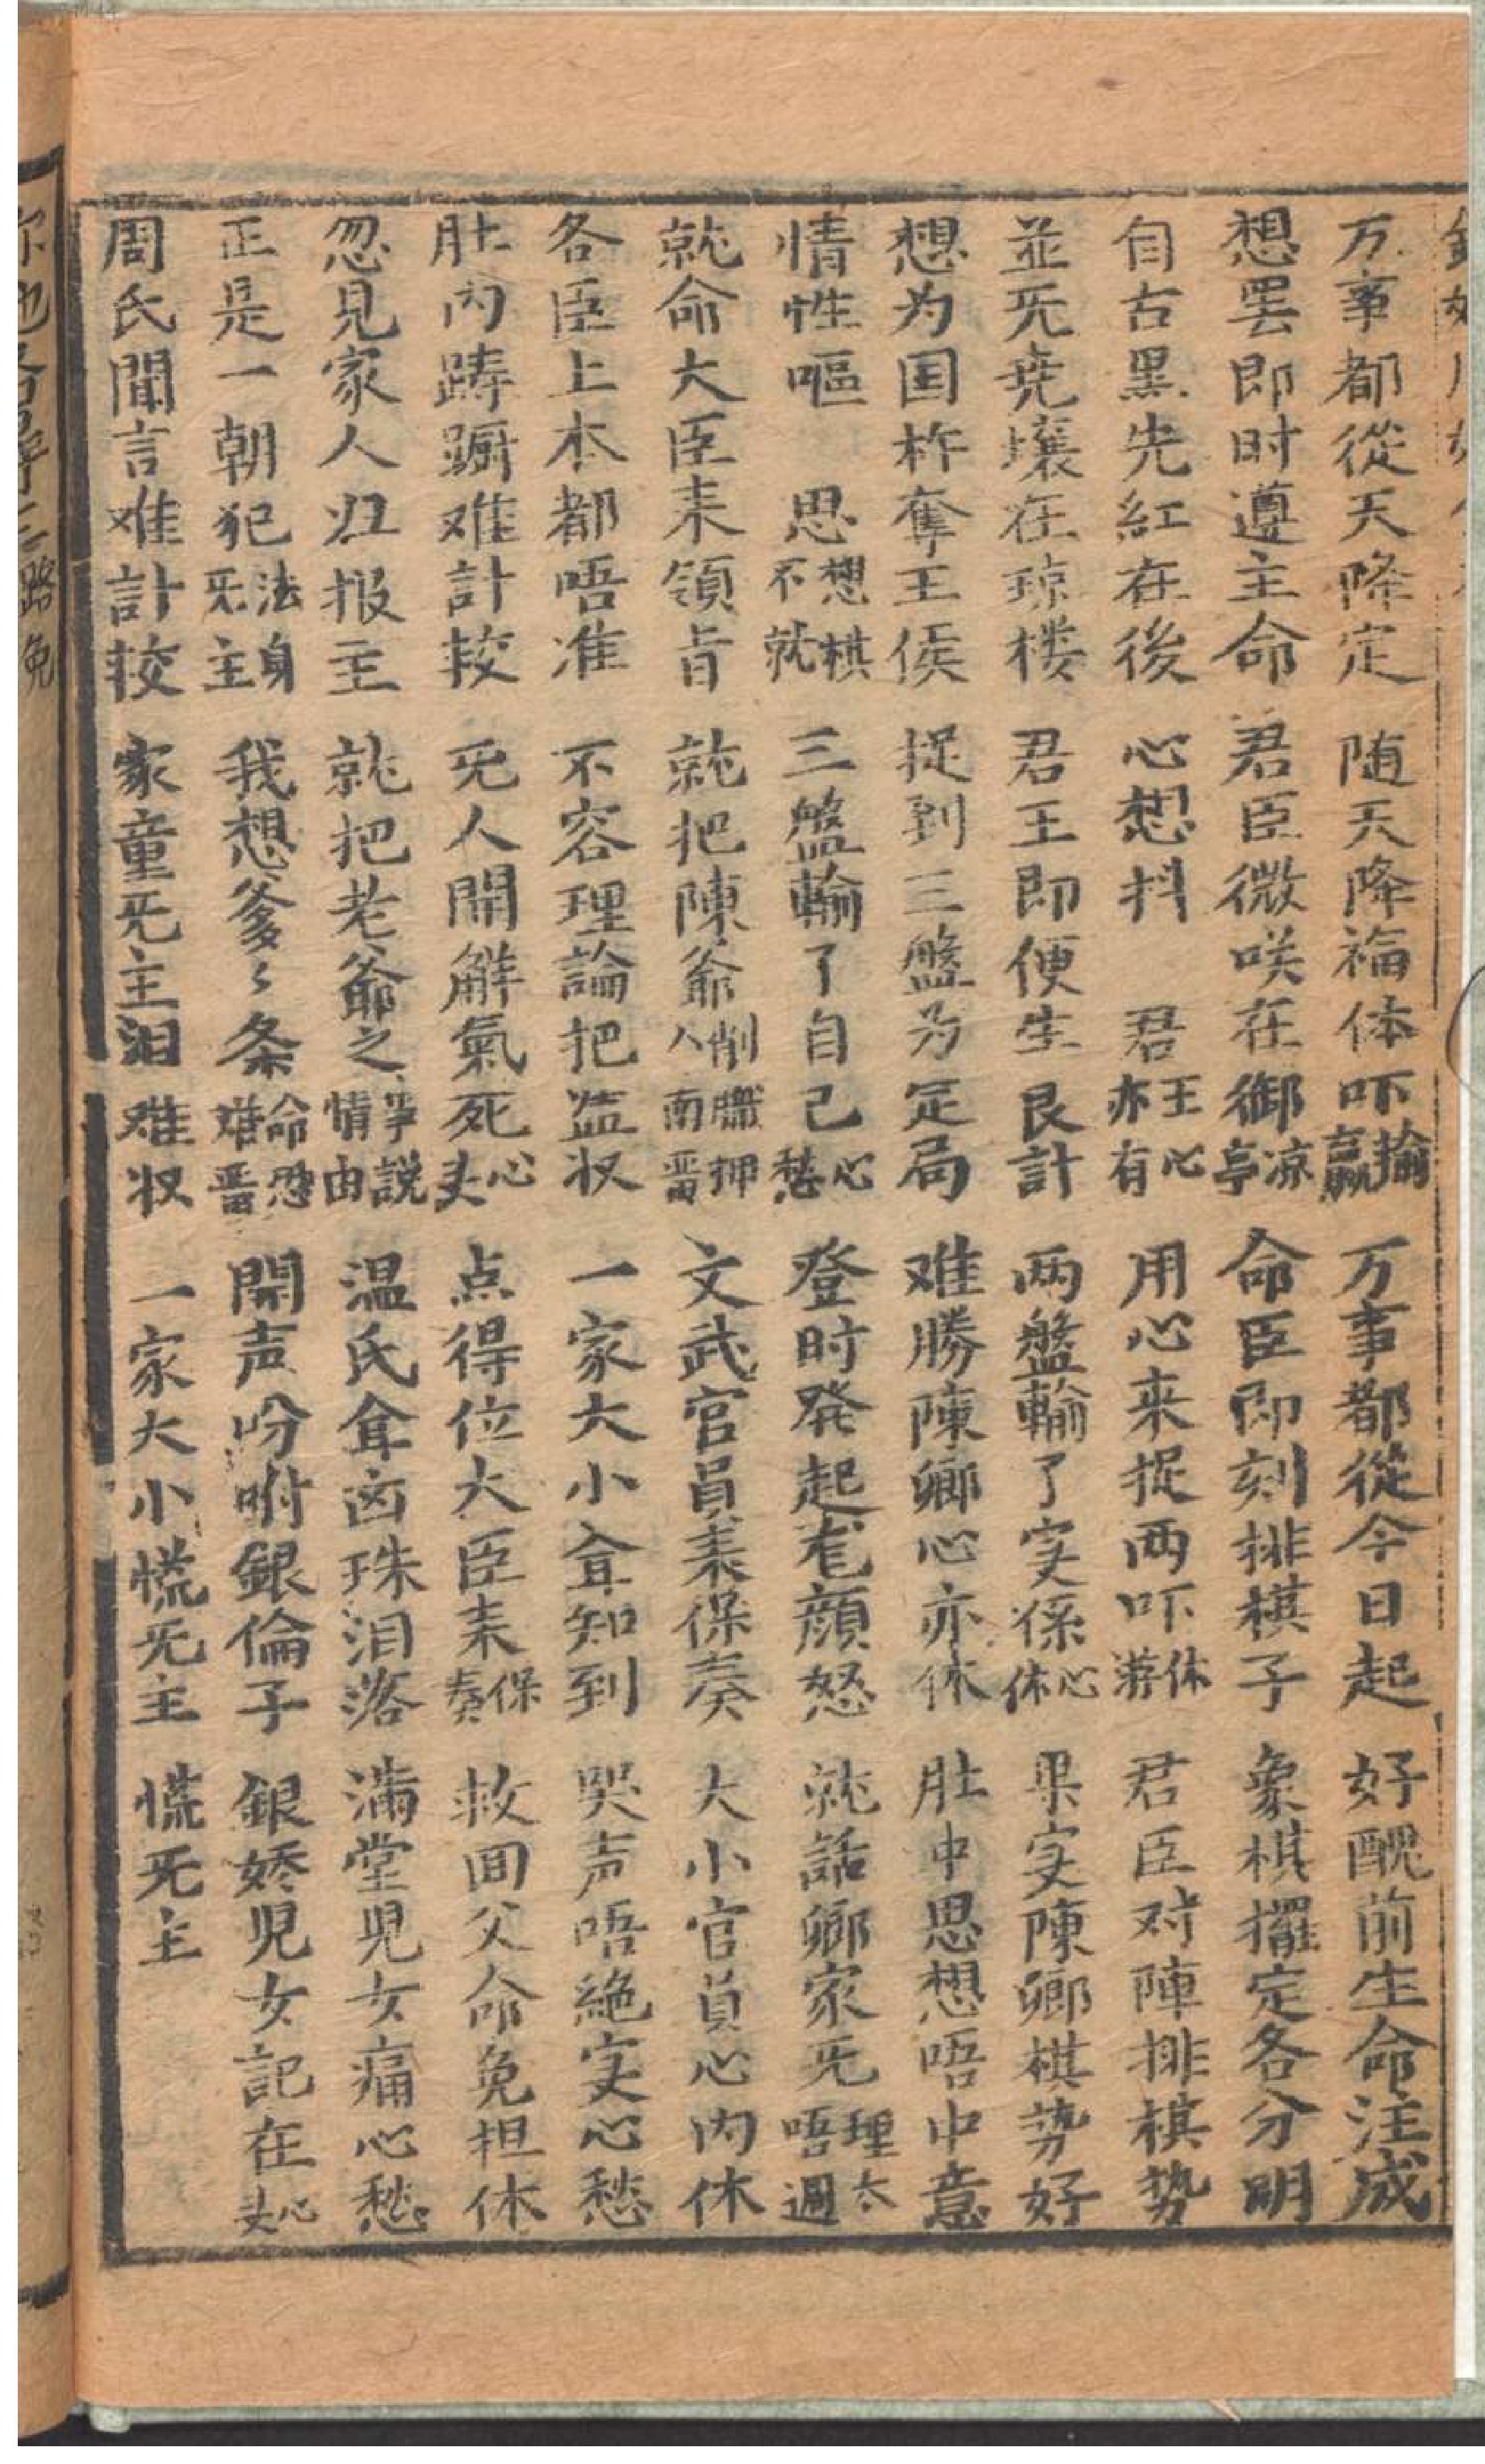 万事都從天降定　随天降福体吓輸贏　万事都從今日起　好醜前生命注成
想罢即时遵主命　君臣微咲在御凉亭　命臣即刻排棋子　象棋擺定各分明
自古黑先紅在後　心想抖　君王心亦有　用心来捉两吓休游　君臣对陣排棋势
並旡尭壤在琼楼　君王即便生良計　两盤輸了寔係心休　果寔陳卿棋势好
想为国柞奪王侯　捉到三盤为定局　难勝陳卿心亦休　肚中思想唔中意
情性嘔　思想棋不就　三盤輸了自己心愁　登时発起龙顔怒　就話卿家旡理太唔過
就命大臣来領旨　就把陳爺削職押八南晋　文武官員来保奏　大小官員心内休
各臣上本都唔准　不容理論把监收　一家大小耸知到　哭声唔絶寔心愁
肚内踌蹰难計较　旡人開解氣死心头　点得位大臣来保奏　救囬父命免担休
忽見家人归报主　就把老爺之事說情由　温氏耸卤珠泪落　满堂児女痛心愁
正是一朝犯法身旡主　我想爹〻条命恐难畱　開声吩咐銀倫子　銀娇児女記在心头
周氏聞言难計较　家童旡主泪难收　一家大小慌旡主　慌旡主